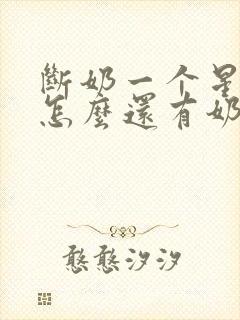 斷奶一个星
怎麼還有奶
憨憨汐汐